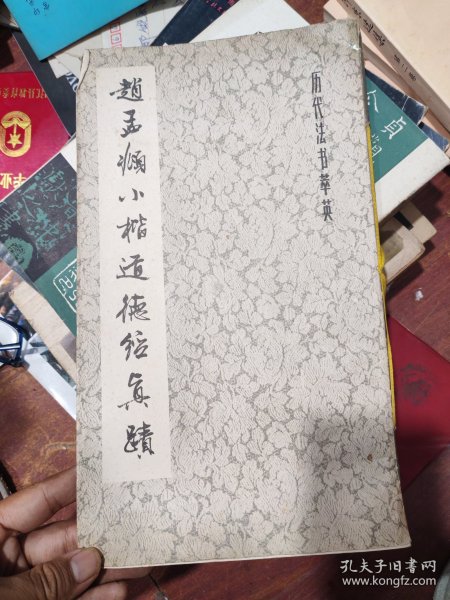 历代法书萃英
趙孟頫小楷道德经真蹟
孔夫子旧书网
www.kongfz.com